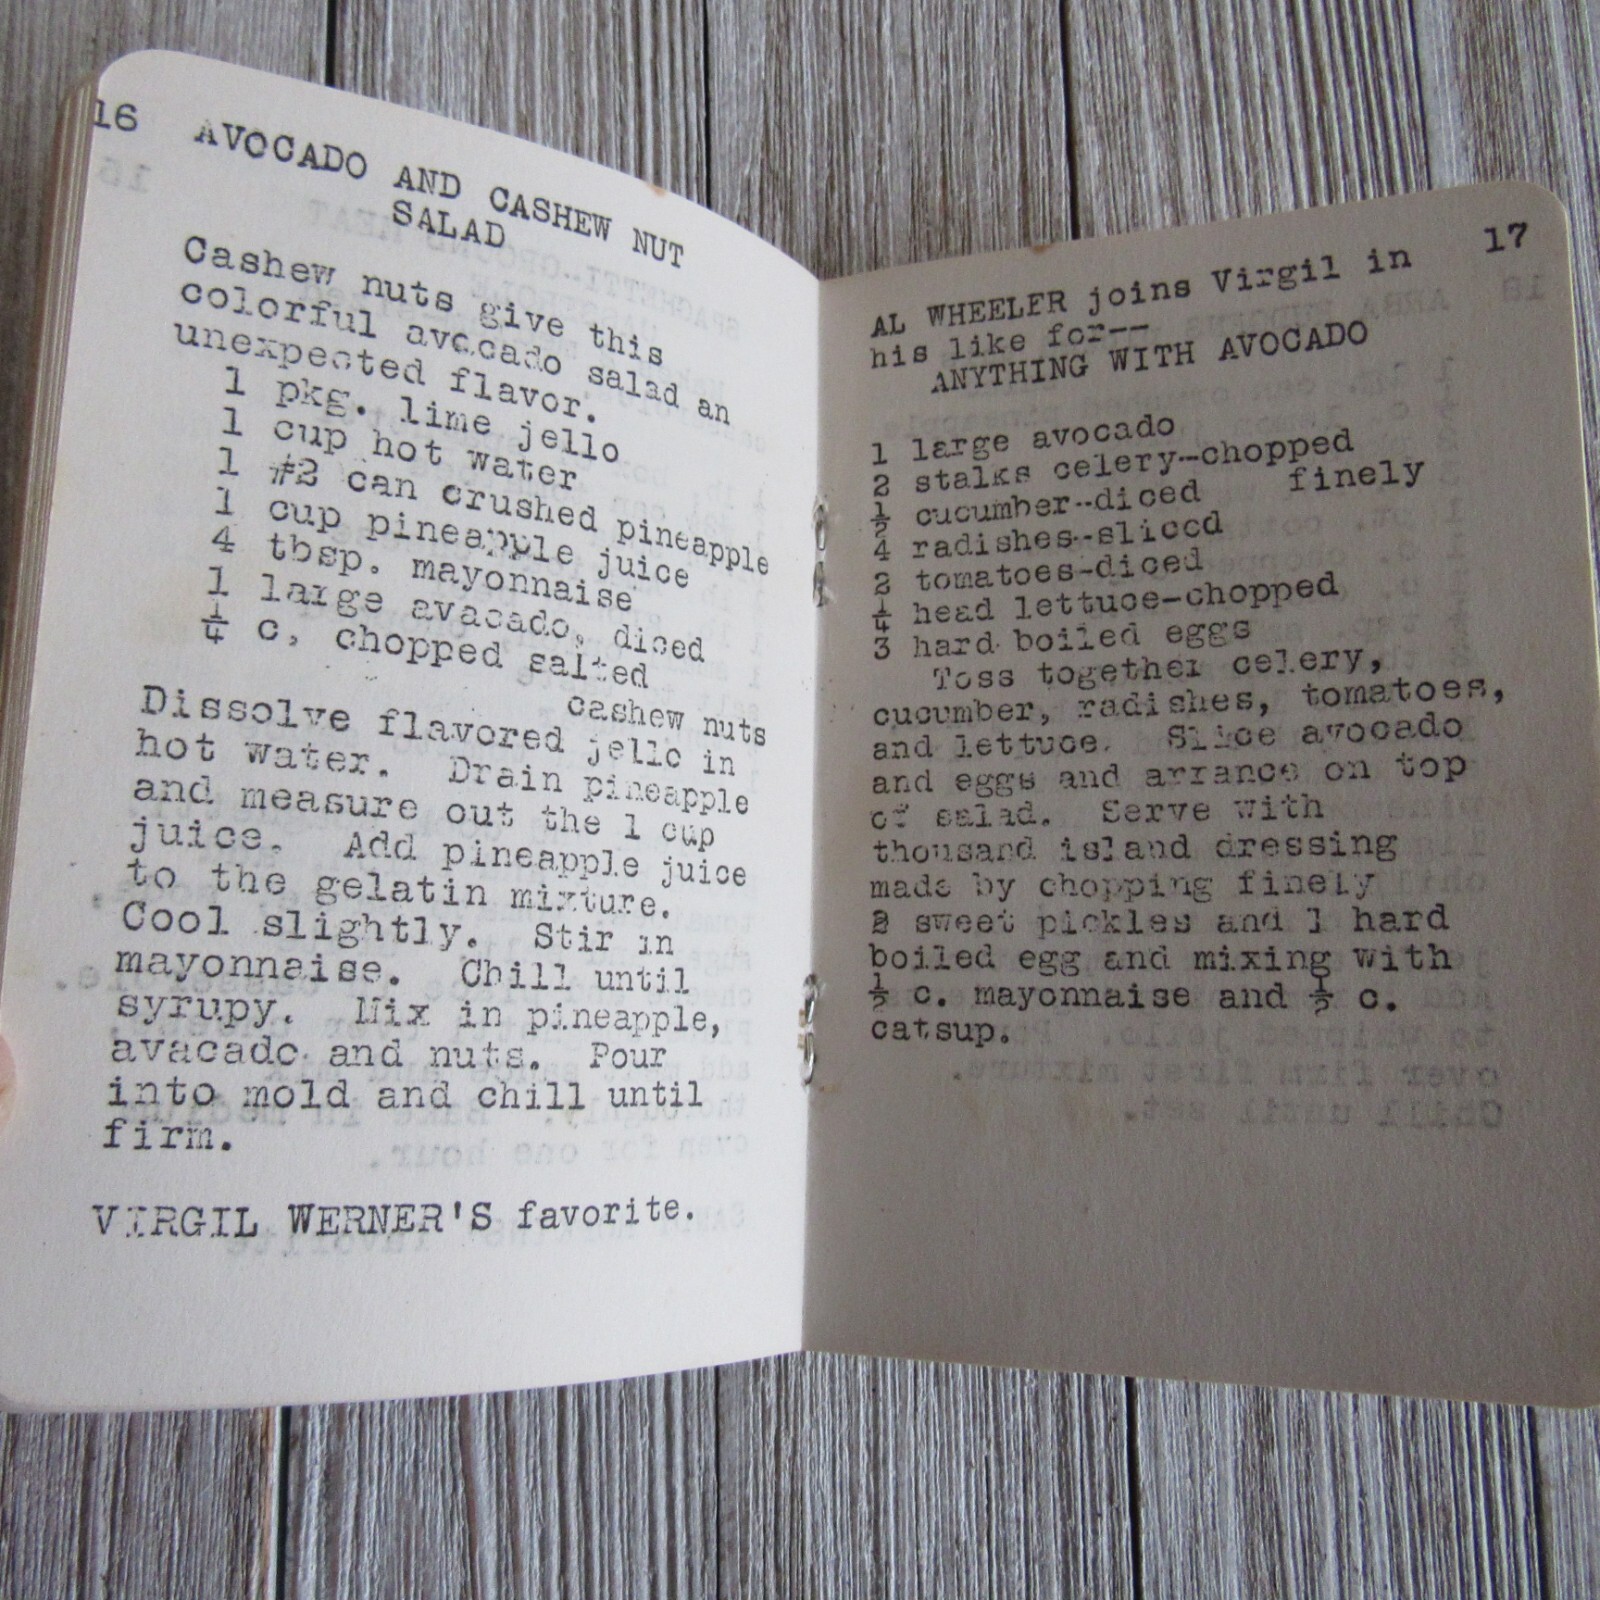 16
AVOCADO AND CASHEW NUT
SALAD
Cashew nuts give this
colorful avocado salad an
unexpected flavor.
1 pkg. lime jello
1 cup hot water
1 #2 can crushed pineapple
1 cup pineapple juice
4 tbsp. mayonnaise
1 large avacado, diced
¼ c, chopped salted
cashew nuts
Dissolve flavored jello in
hot water. Drain pineapple
and measure out the 1 cup
juice. Add pineapple juice
to the gelatin mixture.
Cool slightly. Stir in
mayonnaise. Chill until
syrupy. Mix in pineapple,
avacado and nuts. Pour
into mold and chill until
firm.
VIRGIL WERNER'S favorite.
17
AL WHEELER joins Virgil in
his like for--
ANYTHING WITH AVOCADO
1 large avocado
2 stalks celery--chopped
finely
½ cucumber--diced
4 radishes--sliced
2 tomatoes-diced
¼ head lettuce-chopped
3 hard boiled eggs
Toss together celery,
cucumber, radishes, tomatoes,
and lettuce. Slice avocado
and eggs and arrange on top
of salad. Serve with
thousand island dressing
made by chopping finely
2 sweet pickles and 1 hard
boiled egg and mixing with
½ c. mayonnaise and ½ c.
catsup.